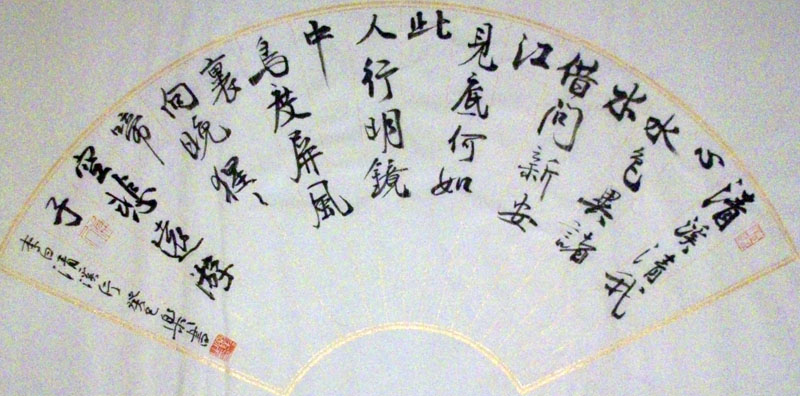 清溪清我
心
水色異諸
水
借問新安
江
見底何如
此
人行明鏡
中
鳥度屏風
裏
向晚猩〻
啼
空悲遠游
子
李白清溪 癸巳 書